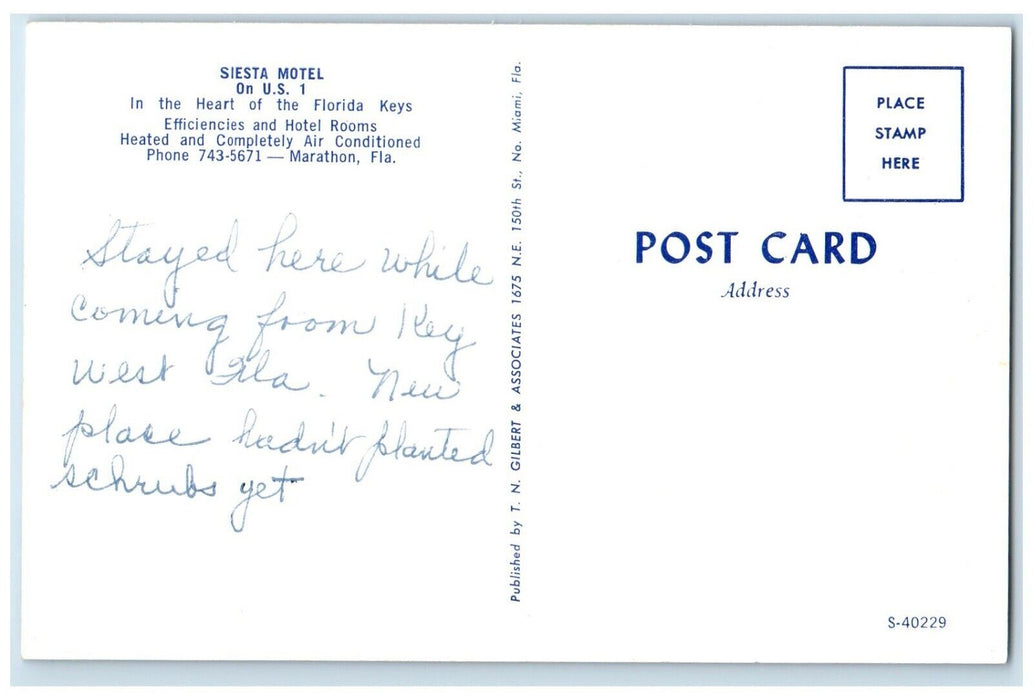 SIESTA MOTEL
On U.S. 1
In the Heart of the Florida Keys
Efficiencies and Hotel Rooms
Heated and Completely Air Conditioned
Phone 743-5671 — Marathon, Fla.
Stayed here while
coming from Key
West Fla. New
place hadn't planted
schrubs yet
Published by T. N. GILBERT & ASSOCIATES 1675 N.E. 150th St., No. Miami, Fla.
PLACE
STAMP
HERE
POST CARD
Address
S-40229